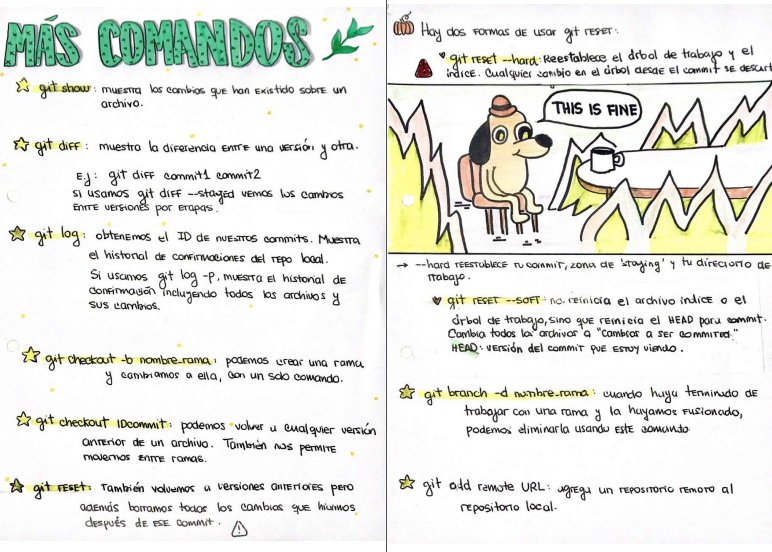 MÁS COMANDOS
git show: muestra los cambios que han existido sobre un
archivo.
git diff: muestra la diferencia entre una versión y otra.
Ej: git diff commit1 commit2
Si usamos git diff --staged vemos los cambios
entre versiones por etapas.
git log: obtenemos el ID de nuestros commits. Muestra
el historial de confirmaciones del repo local.
Si usamos git log -p, muestra el historial de
confirmación incluyendo todos los archivos y
sus cambios.
git checkout -b nombre_rama: podemos crear una rama
y cambiarnos a ella, con un solo comando.
git checkout IDcommit: podemos volver a cualquier versión
anterior de un archivo. También nos permite
movernos entre ramas.
git reset: También volvemos a versiones anteriores pero
además borramos todos los cambios que hicimos
después de ese commit.
Hay dos formas de usar git reset:
git reset --hard: Reestablece el árbol de trabajo y el
índice. Cualquier cambio en el árbol desde el commit se descart
THIS IS FINE
→ --hard reestablece tu commit, zona de 'staging' y tu directorio de
trabajo.
git reset --soft: no reinicia el archivo índice o el
árbol de trabajo, sino que reinicia el HEAD para commit.
Cambia todos los archivos a "Cambios a ser commited."
HEAD: versión del commit que estoy viendo.
git branch -d nombre_rama: cuando haya terminado de
trabajar con una rama y la hayamos fusionado,
podemos eliminarla usando este comando.
git add remote URL: agrega un repositorio remoto al
repositorio local.